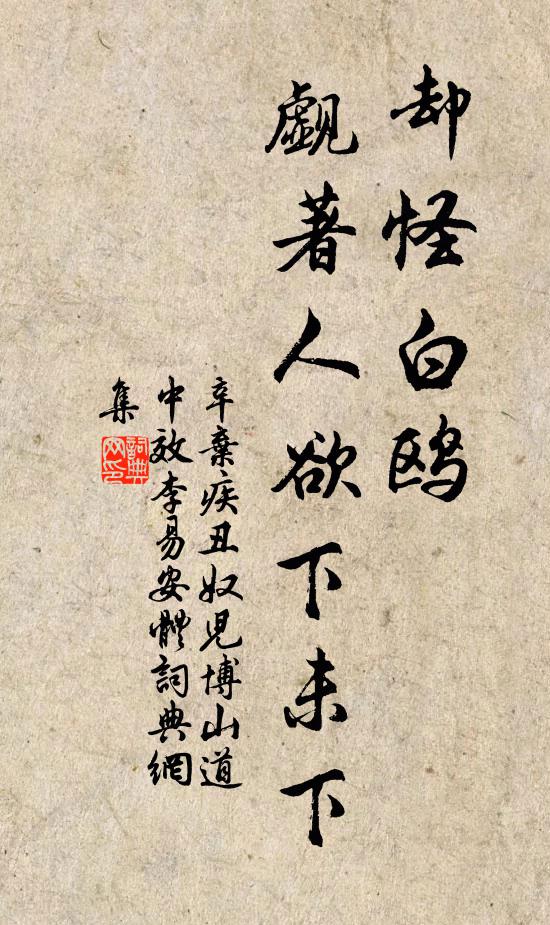 却怪白鸥
觑著人欲下未下
辛棄疾丑奴兒博山道
中效李易安體詞典網
集